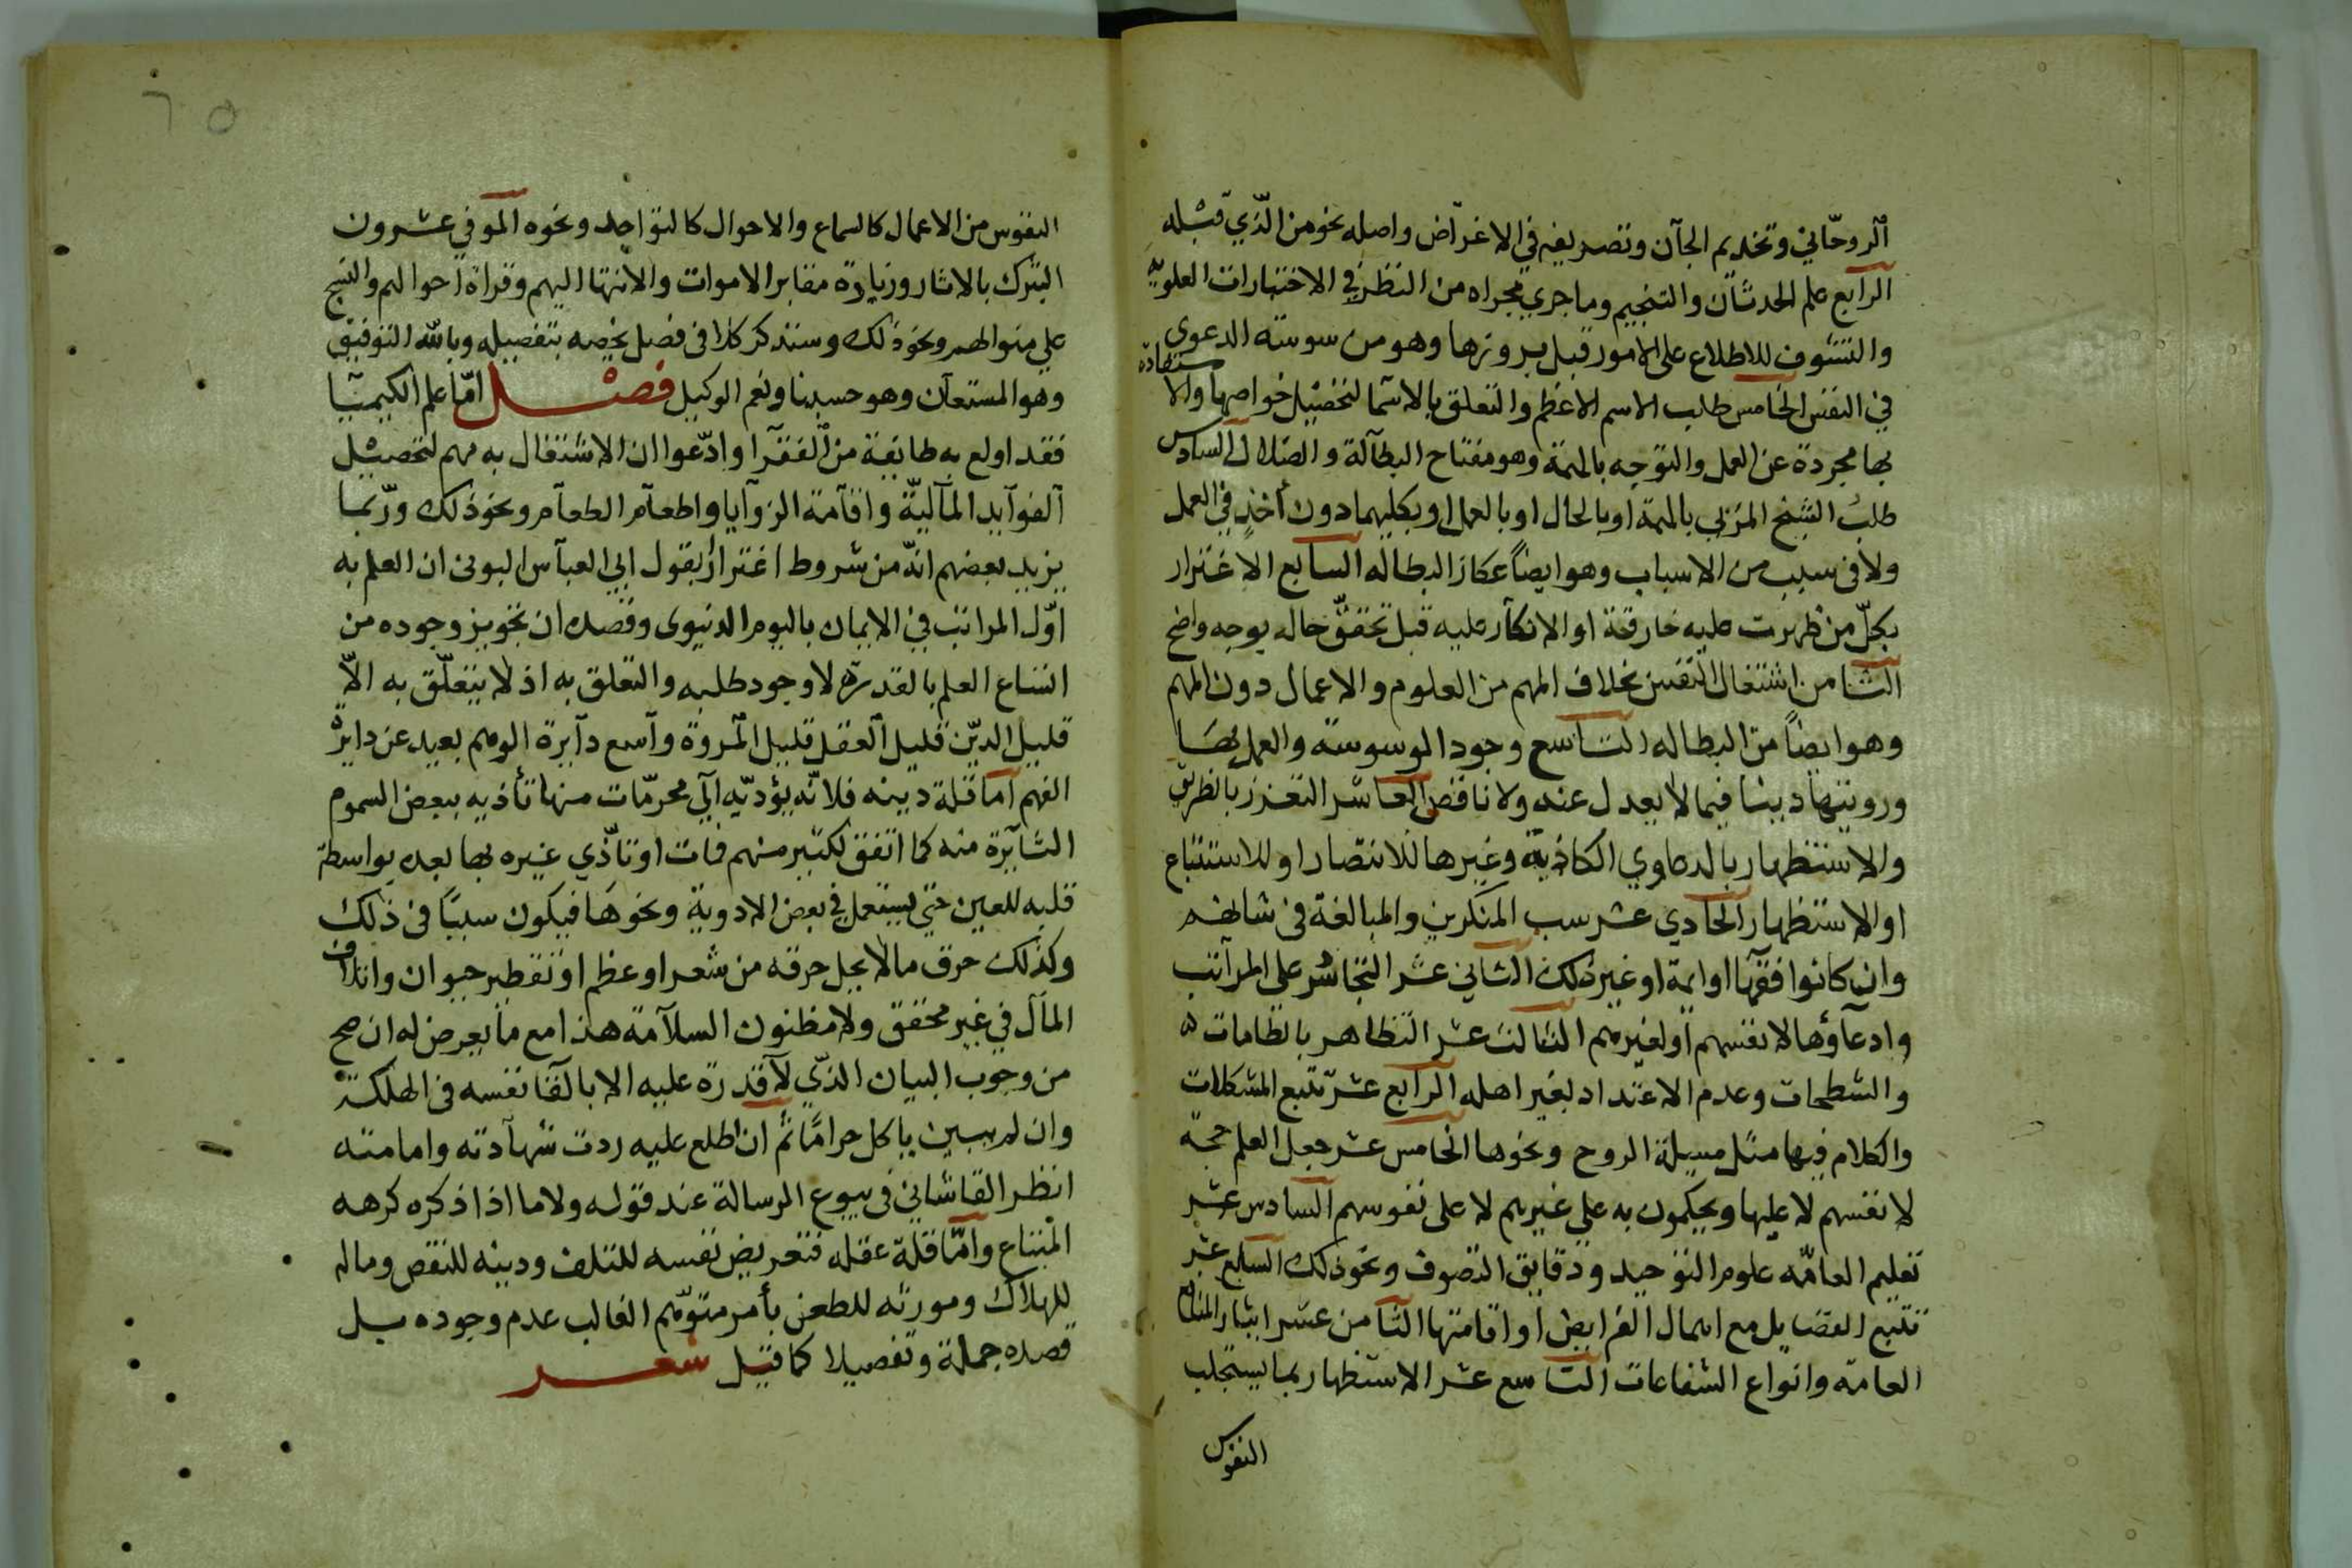 الروحاني وتخديم الجان وتصريفه في الاغراض واصله نحو من الذي قبله
الرابع علم الحدثان والتنجيم وما جري مجراه من النظر في الاختبارات العلويه
والتشوف للاطلاع على الامور قبل بروزها وهو من سوسته الدعوى
في النفس الخامس طلب الاسم الاعظم والتعلق بالاسما لتحصيل خواصها والاستفادة
بها مجردة عن العمل والتوجه بالهمة وهو مفتاح البطالة والضلال السادس
طلب الشيخ المربي بالهمة او بالحال او بالعمل او بكليهما دون اخذ في العمل
ولا في سبب من الاسباب وهو ايضاً عكاز البطاله السابع الاغترار
بكل من ظهرت عليه خارقة او الانكار عليه قبل تحقق حاله بوجه واضح
الثامن اشتغال النفس بخلاف المهم من العلوم والاعمال دون المهم
وهو ايضاً من البطاله التاسع وجود الوسوسة والعمل بها
ورويتها دينا فيما لا يعدل عنه ولا ناقض العاشر التعزز بالطريق
والاستظهار بالدعاوي الكاذبة وغيرها للانتصار او للاستتباع
او الاستظهار الحادي عشر سب المنكرين والمبالغة في شانهم
وان كانوا فقها او ايمة او غير ذلك الثاني عشر التجاسر على المراتب
وادعاؤها لانفسهم او لغيرهم الثالث عشر التظاهر بالطامات
والشطحات وعدم الاعتداد بغير اهله الرابع عشر تتبع المشكلات
والكلام فيها مثل مسيلة الروح ونحوها الخامس عشر جعل العلم حجة
لانفسهم لا عليها ويحكمون به علي غيرهم لا على نفوسهم السادس عشر
تعليم العامه علوم التوحيد ودقايق التصوف ونحو ذلك السابع عشر
تتبع الفضايل مع اهمال الفرايض او اقامتها الثامن عشر ايثار المنافع
العامه وانواع الشفاعات التاسع عشر الاستظهار بما يستجلب
النفوس
٦٥
النفوس من الاعمال كالسماع والاحوال كالتواجد ونحوه الموفي عشرون
التبرك بالاثار وزيارة مقابر الاموات والانتها اليهم وقراة احوالهم والنسج
علي منوالهم ونحو ذلك وسنذكر كلا في فصل يخصه بتفصيله وبالله التوفيق
وهو المستعان وهو حسبنا ونعم الوكيل فصل اما علم الكيميا
فقد اولع به طايفة من الفقرا وادعوا ان الاشتغال به مهم لتحصيل
الفوايد المالية واقامة الزوايا واطعام الطعام ونحو ذلك وربما
يزيد بعضهم انه من شروط اغترارا بقول ابي العباس البوني ان العلم به
اول المراتب في الايمان باليوم الدنيوى وقصده ان تجويز وجوده من
اتساع العلم بالقدرة لا وجود طلبه والتعلق به اذ لا يتعلق به الا
قليل الدين قليل العقل قليل المروة واسع دايرة الوهم بعيد عن دايرة
الفهم اما قلة دينه فلانه يؤديه الي محرمات منها تأذيه ببعض السموم
الثايرة منه كما اتفق لكثير منهم فمات او تاذي غيره بها بعده بواسطة
قلبه للعين حتي يستعمل في بعض الادوية ونحوها فيكون سببا في ذلك
وكذلك حرق ما لا يحل حرقه من شعر او عظم او تقطير حيوان واتلاف
المال في غير محقق ولا مظنون السلامة هذا مع ما يعرض له ان صح
من وجوب البيان الذي لا قدرة عليه الا بالقا نفسه في الهلكة
وان لم يبين ياكل حراما ثم ان اطلع عليه ردت شهادته وامامته
انظر القاشاني في بيوع الرسالة عند قوله ولا ما اذا ذكره كرهه
المبتاع واما قلة عقله فتعريض نفسه للتلف ودينه للنقص وماله
للهلاك ومورثه للطعن بأمر متوهم الغالب عدم وجوده بل
قصده جملة وتفصيلا كما قيل شعر